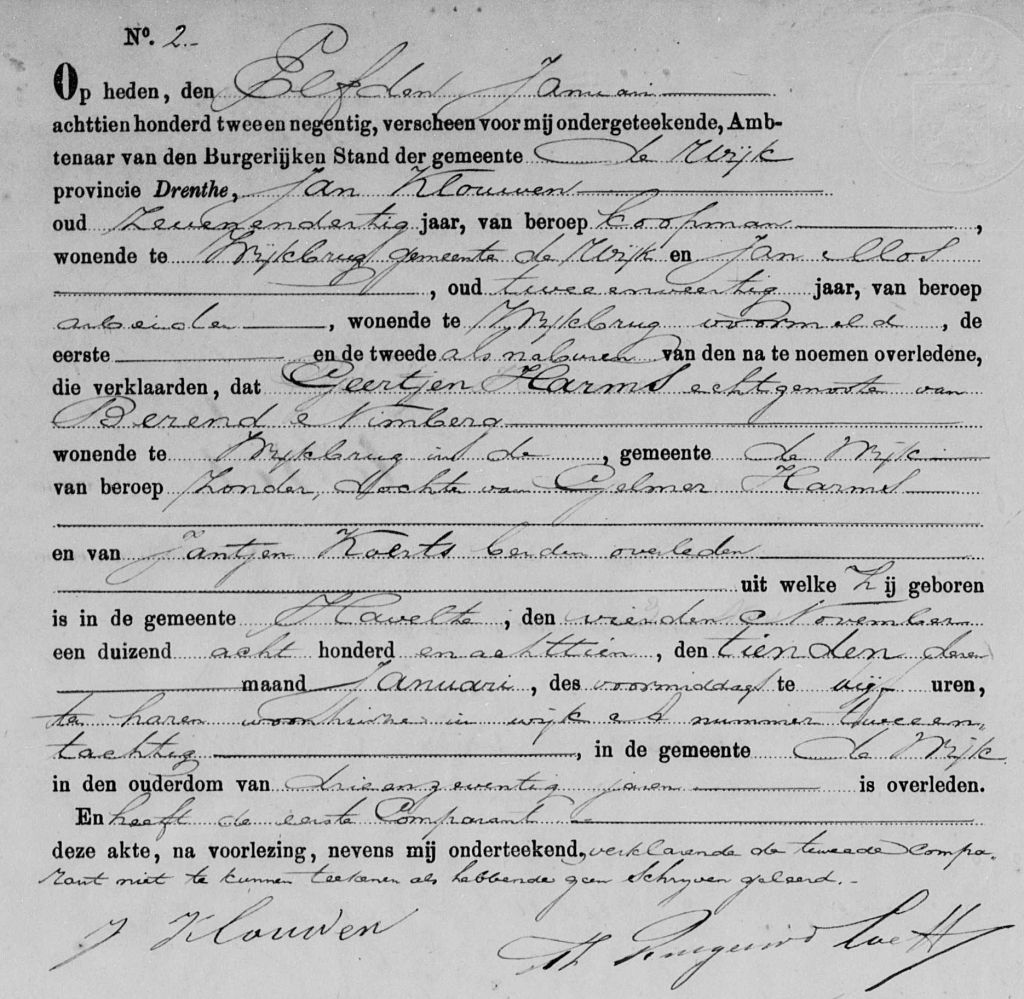 No. 2.-
Op heden, den Elfden Januari
achttien honderd twee en negentig, verscheen voor mij ondergeteekende, Amb-
tenaar van den Burgerlijken Stand der gemeente de Wijk
provincie Drenthe, Jan Klouwen
oud zevenendertig jaar, van beroep koopman,
wonende te Wijkbrug gemeente de Wijk en Jan Mos
, oud tweeenveertig jaar, van beroep
arbeider, wonende te Wijkbrug voormeld, de
eerste en de tweede als naburen van den na te noemen overledene,
die verklaarden, dat Geertjen Harms echtgenoote van
Berend Nimberg
wonende te Wijkbrug in de, gemeente de Wijk
van beroep zonder, dochter van Gelmer Harms
en van Jantjen Koerts beiden overleden
uit welke Zij geboren
is in de gemeente Havelte, den vierden November
een duizend acht honderd en achttien, den tienden dezer
maand Januari, des voormiddags te vijf uren,
ten haren woonhuize in wijk A nummer tweeen-
tachtig, in de gemeente de Wijk
in den ouderdom van drieenzeventig jaren is overleden.
En heeft de eerste Comparant
deze akte, na voorlezing, nevens mij onderteekend, verklarende de tweede compa-
rant niet te kunnen teekenen als hebbende geen schrijven geleerd.-
J Klouwen